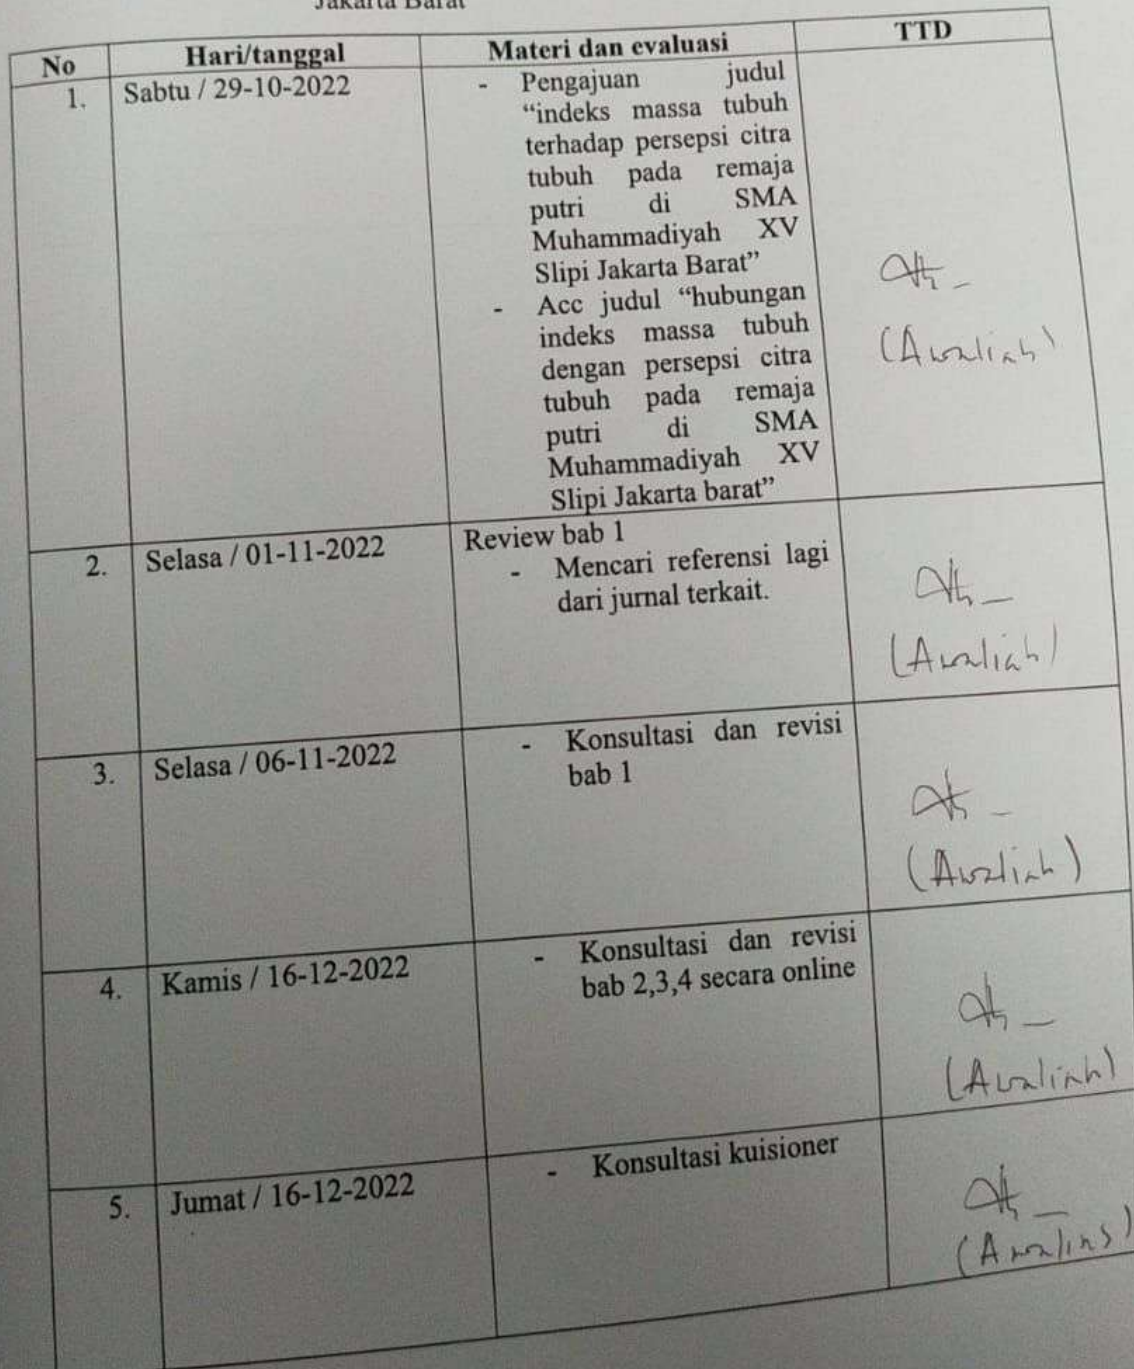 Jakarta Barat
No Hari/tanggal Materi dan evaluasi TTD
1. Sabtu / 29-10-2022 - Pengajuan judul
“indeks massa tubuh
terhadap persepsi citra
tubuh pada remaja
putri di SMA
Muhammadiyah XV
Slipi Jakarta Barat”
- Acc judul “hubungan
indeks massa tubuh
dengan persepsi citra
tubuh pada remaja
putri di SMA
Muhammadiyah XV
Slipi Jakarta barat”
(Awaliah)
2. Selasa / 01-11-2022 Review bab 1
- Mencari referensi lagi
dari jurnal terkait.
(Awaliah)
3. Selasa / 06-11-2022 - Konsultasi dan revisi
bab 1
(Awaliah)
4. Kamis / 16-12-2022 - Konsultasi dan revisi
bab 2,3,4 secara online
(Awaliah)
5. Jumat / 16-12-2022 - Konsultasi kuisioner
(Awaliah)